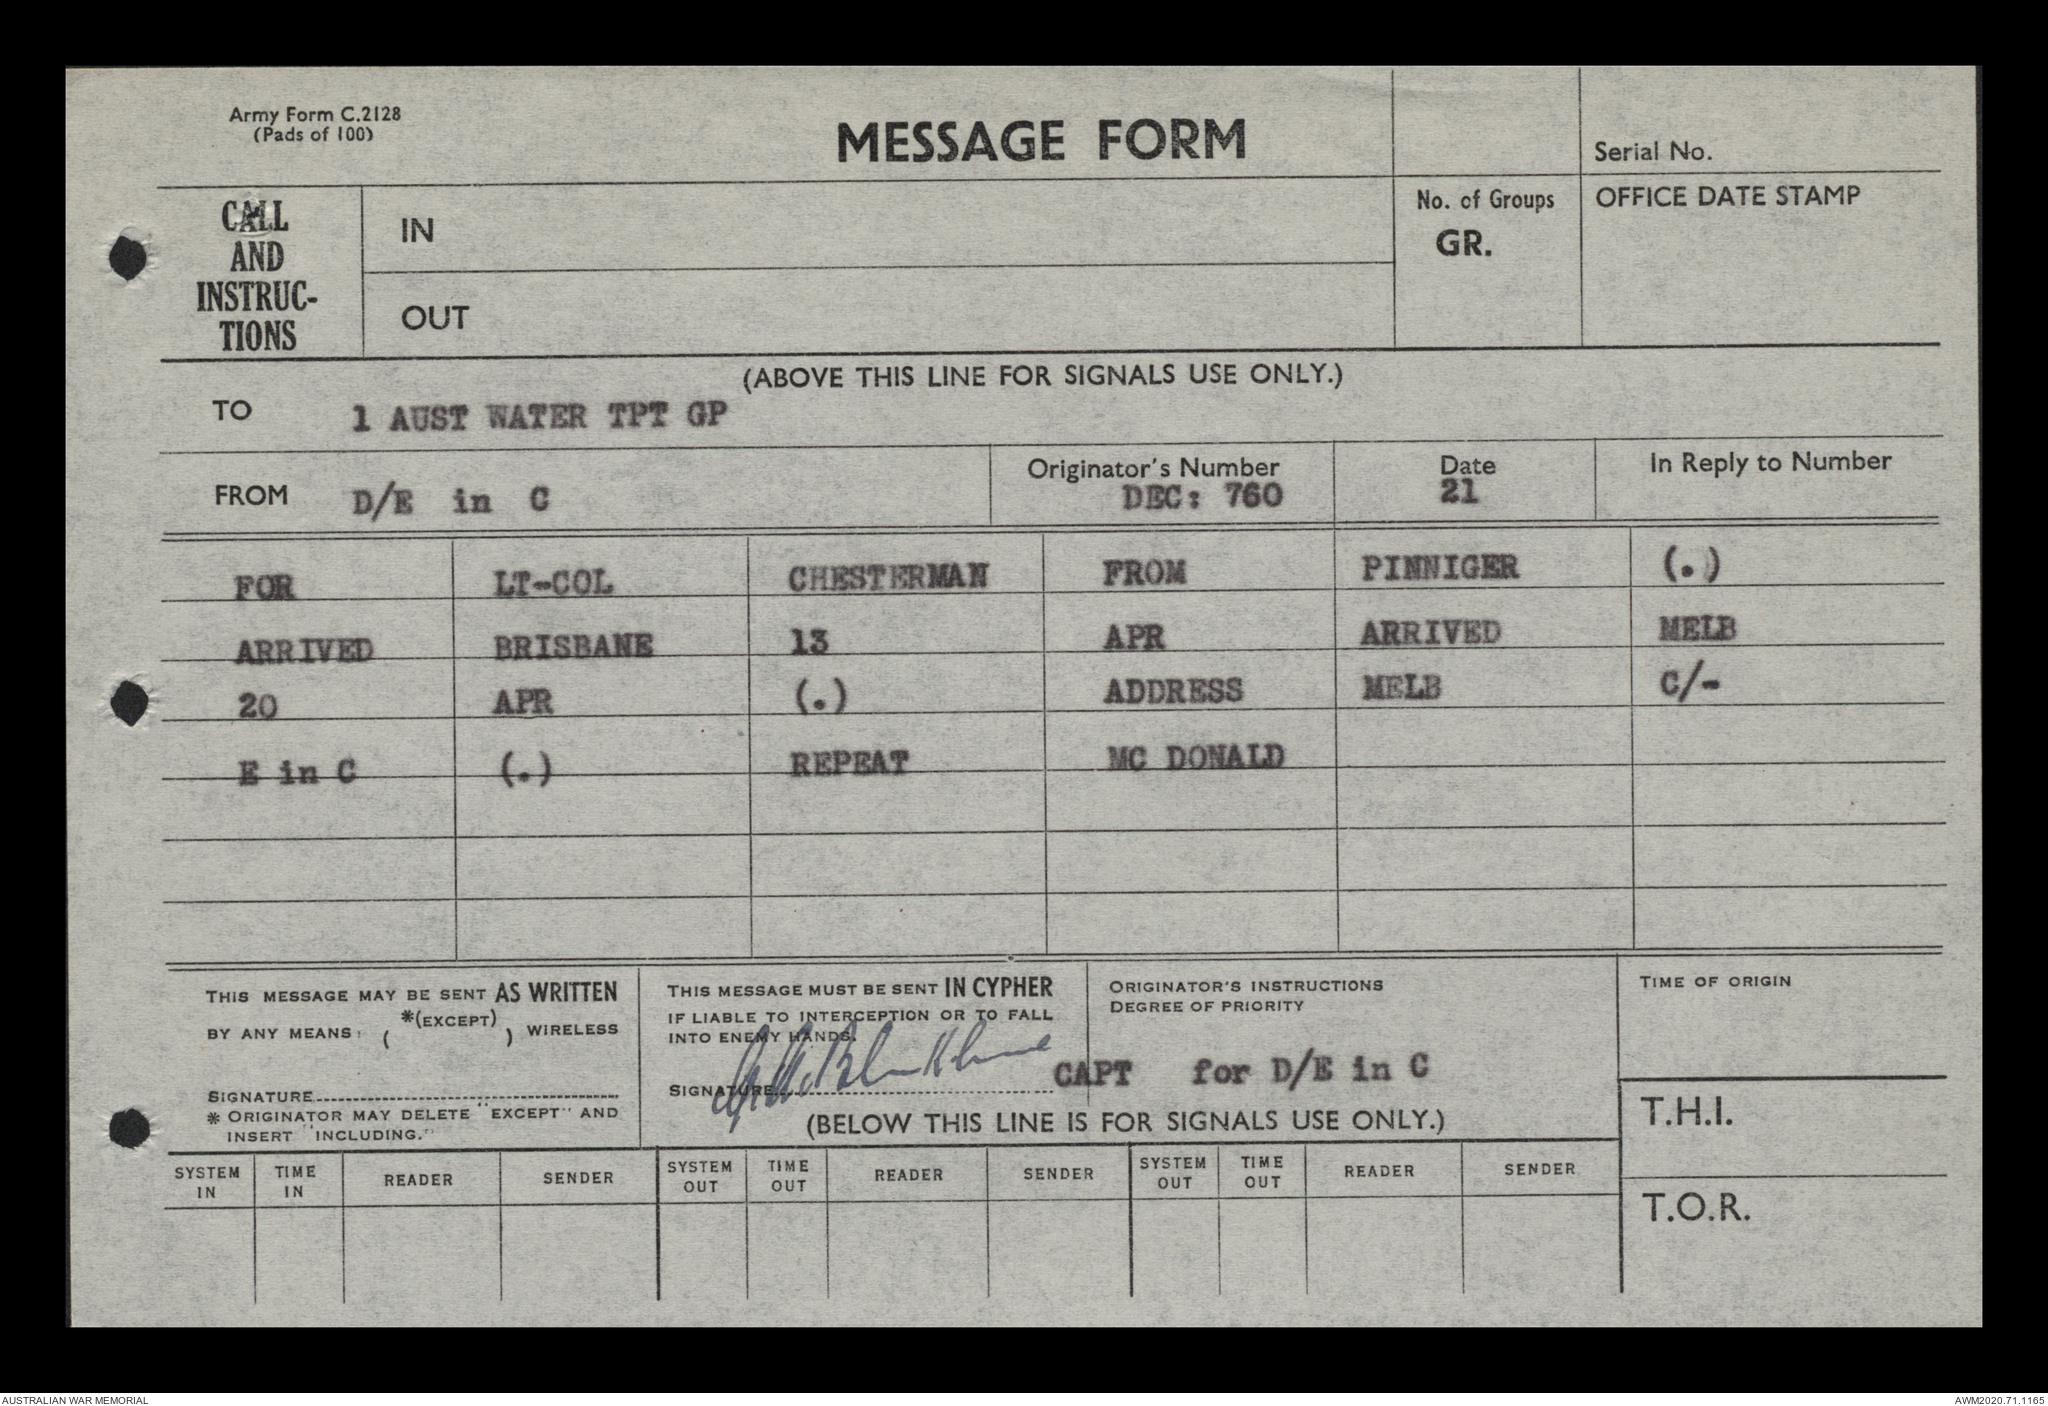 Army Form C.2128
(Pads of 100)
MESSAGE FORM
Serial No.
CALL
AND
INSTRUC-
TIONS
IN
OUT
No. of Groups
GR.
OFFICE DATE STAMP
(ABOVE THIS LINE FOR SIGNALS USE ONLY.)
TO 1 AUST WATER TPT GP
FROM D/E in C
Originator's Number
DEC: 760
Date
21
In Reply to Number
FOR LT-COL CHESTERMAN FROM PINNIGER (.)
ARRIVED BRISBANE 13 APR ARRIVED MELB
20 APR (.) ADDRESS MELB C/-
E in C (.) REPEAT MC DONALD
THIS MESSAGE MAY BE SENT AS WRITTEN
BY ANY MEANS ( *(EXCEPT) ) WIRELESS
SIGNATURE
* ORIGINATOR MAY DELETE "EXCEPT" AND
INSERT "INCLUDING."
THIS MESSAGE MUST BE SENT IN CYPHER
IF LIABLE TO INTERCEPTION OR TO FALL
INTO ENEMY HANDS.
SIGNATURE CAPT for D/E in C
ORIGINATOR'S INSTRUCTIONS
DEGREE OF PRIORITY
TIME OF ORIGIN
(BELOW THIS LINE IS FOR SIGNALS USE ONLY.)
T.H.I.
T.O.R.
SYSTEM IN TIME IN READER SENDER SYSTEM OUT TIME OUT READER SENDER SYSTEM OUT TIME OUT READER SENDER
AUSTRALIAN WAR MEMORIAL
AWM2020.71.1165